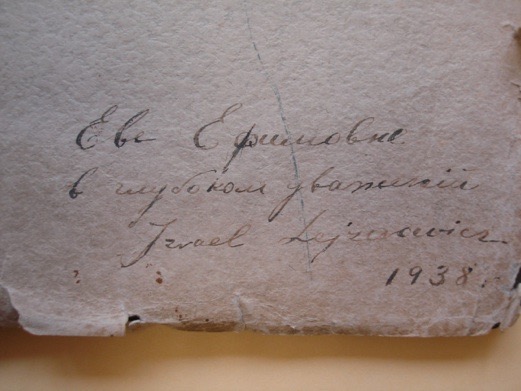 Еве Ефимовне
в глубоком уважений
Izrael Lejzerowicz
1938 г.